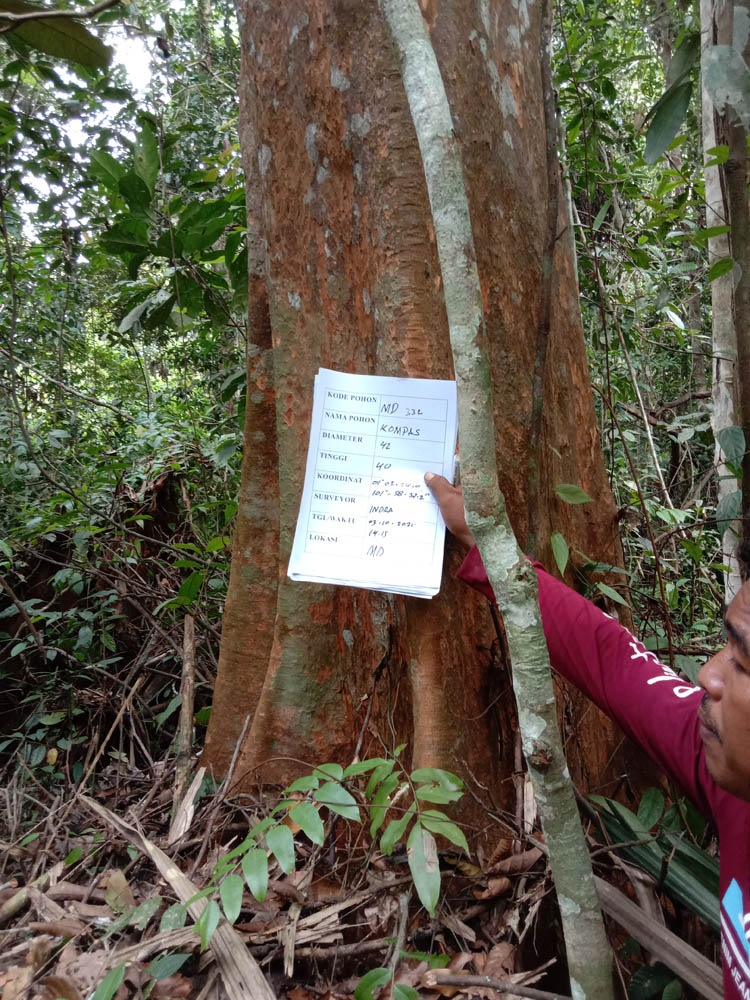 KODE POHON MD 332
NAMA POHON KOMPAS
DIAMETER 42
TINGGI 40
KOORDINAT
SURVEYOR INDRA
TGL/WAKTU 03-10-2021
14.15
LOKASI MD